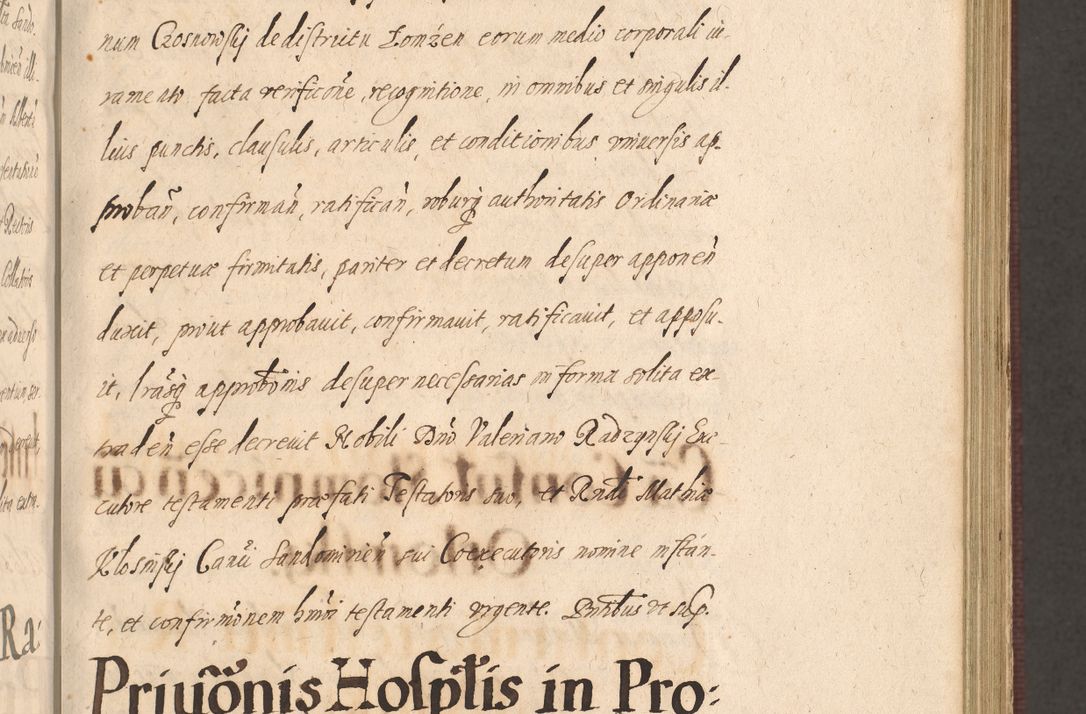 num Czosnowskij de districtu Łomżen eorum medio corporali iu-
ramento facta verificõne, recognitione, in omnibus et singulis il-
lius punctis, clausulis, articulis, et conditionibus universis ap-
probañ, confirmañ, ratificañ, roburq authoritatis Ordinariæ
et perpetuæ firmitatis, pariter et decretum desuper apponeñ
duxit, prout approbavit, confirmavit, ratificavit, et apposu-
it, lrasq approbõnis desuper necessarias in forma solita ex-
tradeñ esse decrevit Nobili Dño Valeriano Radzynskij Exe-
cutore testamenti præfati Testatoris suo, et Rndo Mathiæ
Klosinskij Canci Sandomirieñ sui Coexecutoris nomine instan-
te, et confirmõnem hmõi testamenti urgente. Pntibus ut sup.
Privõnis Hosptlis in Pro:
Ra: